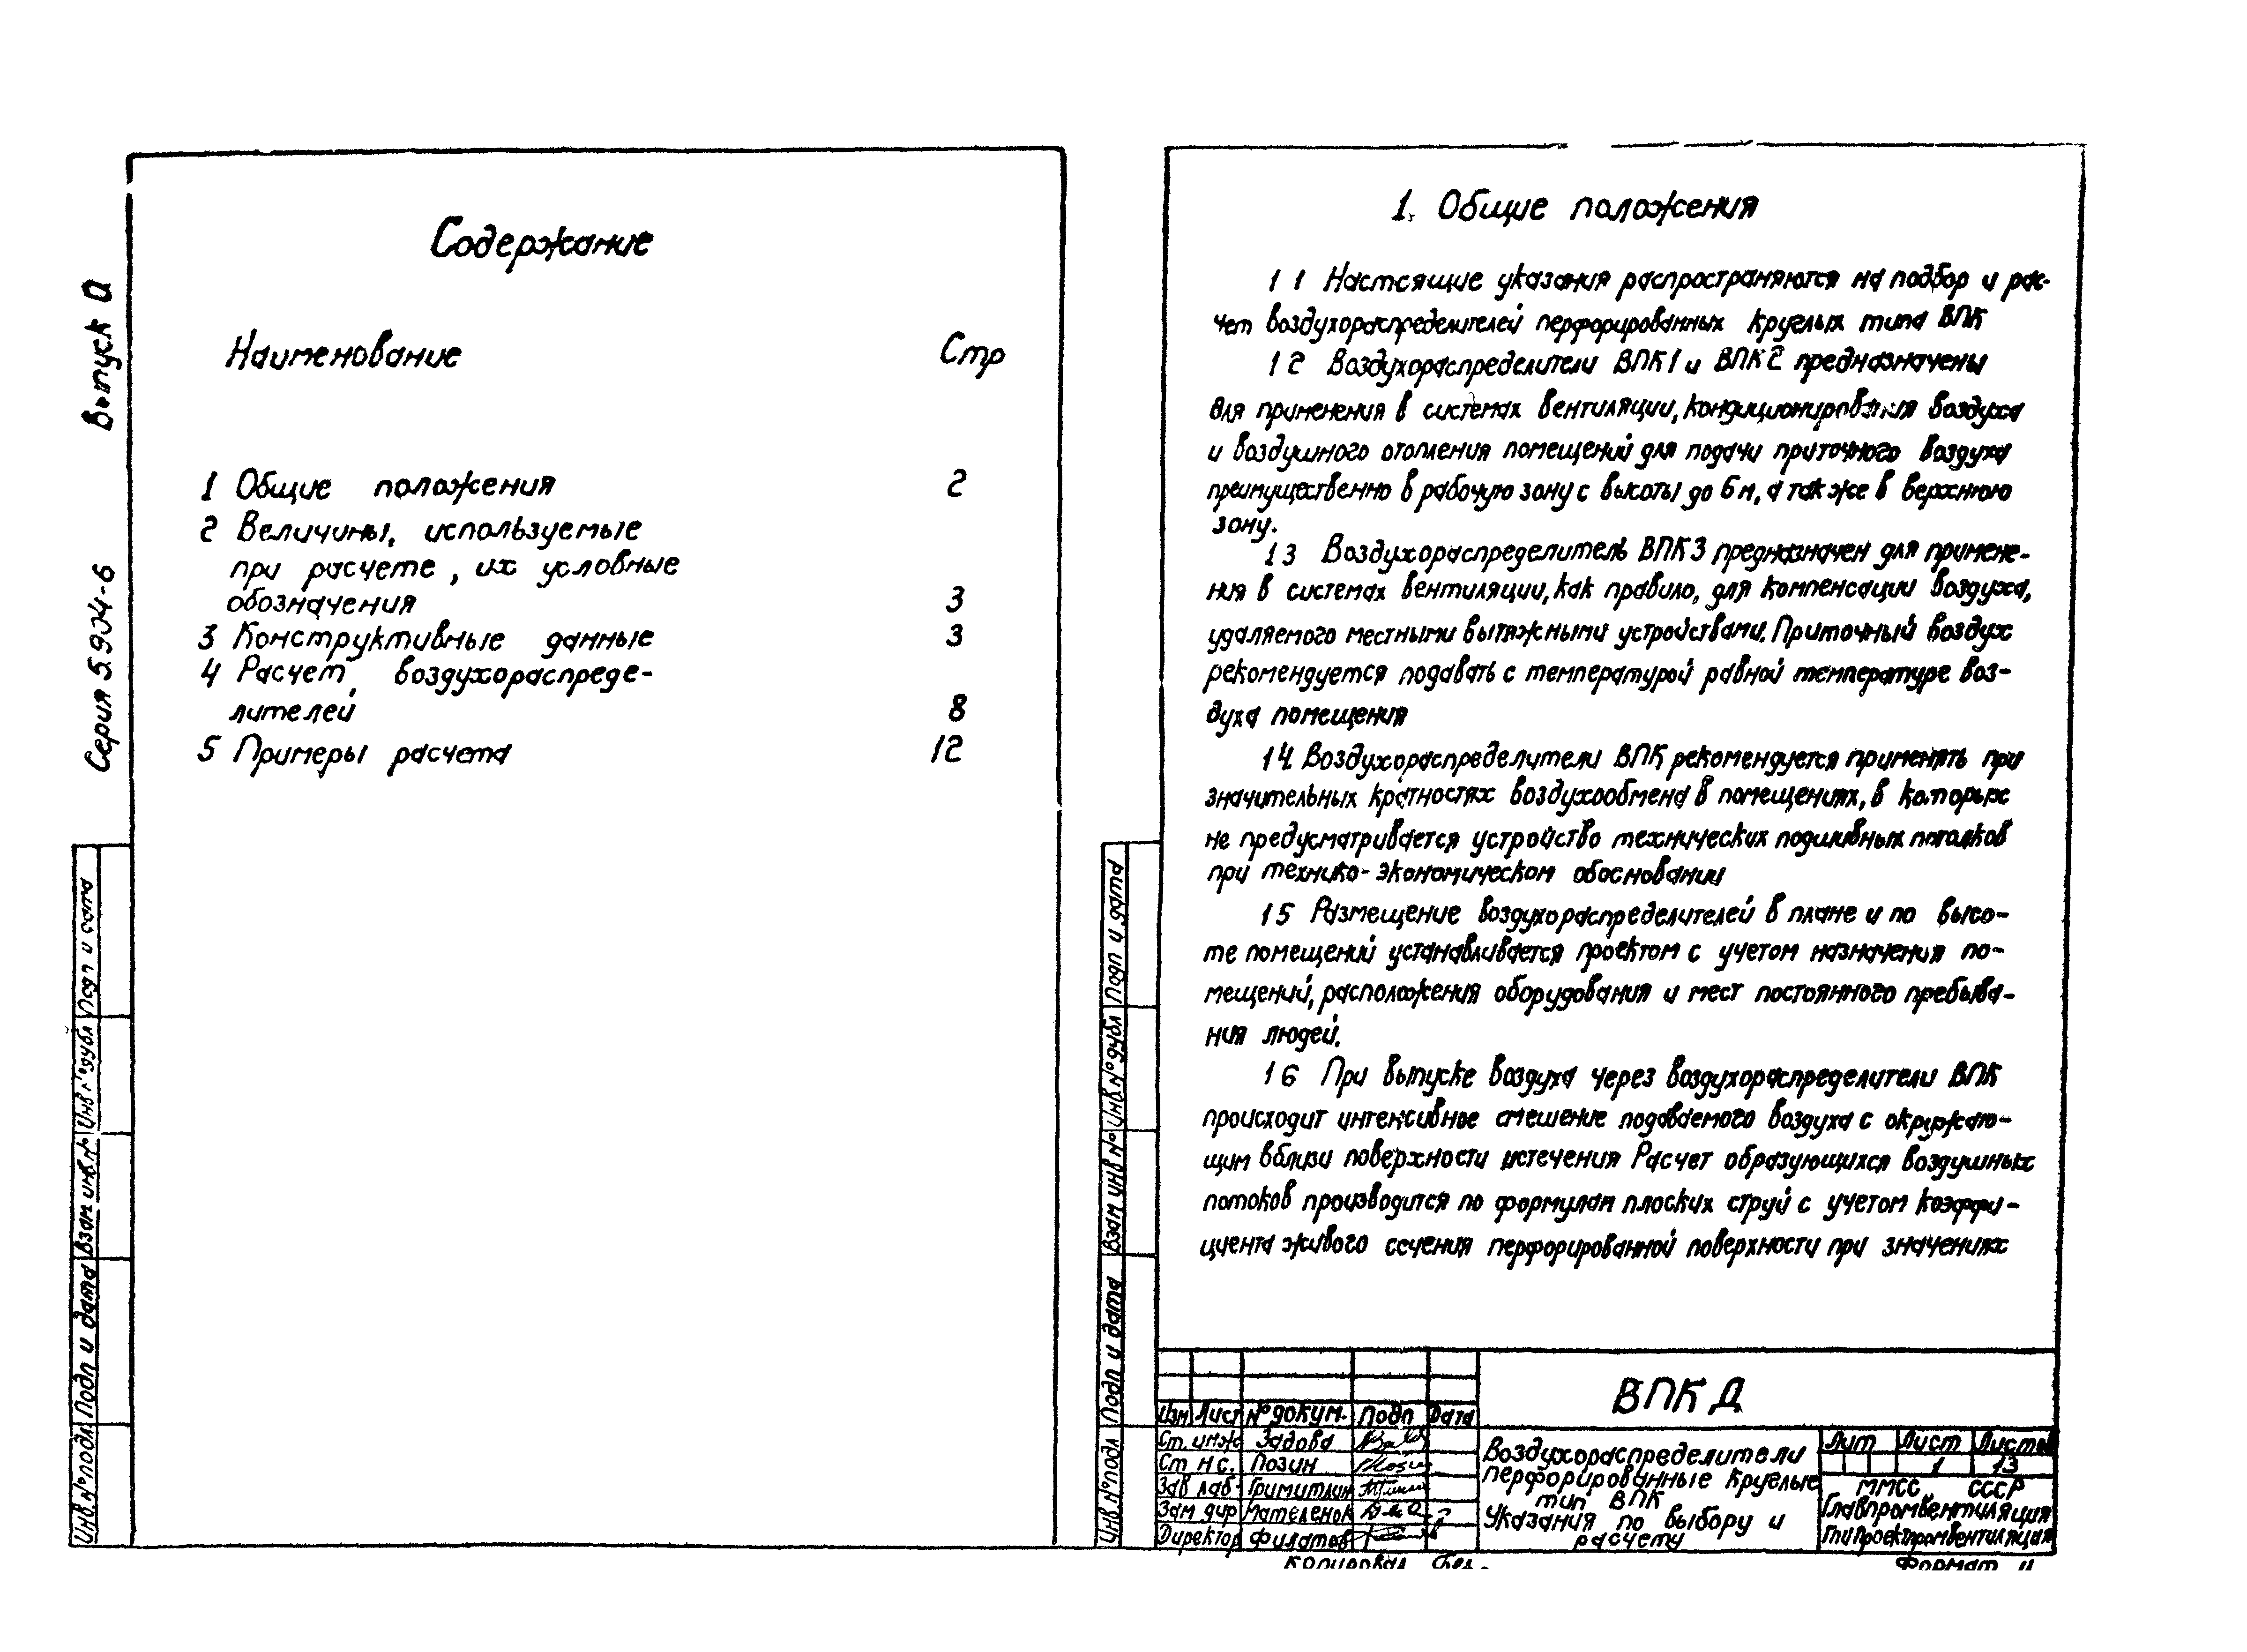 Содержание
Наименование Стр
1 Общие положения 2
2 Величины, используемые
при расчете, их условные
обозначения 3
3 Конструктивные данные 3
4 Расчет воздухораспреде-
лителей 8
5 Примеры расчета 12
Серия 5.904-6 Выпуск 0
Подп и дата
Инв № дубл
Взам инв №
Подп и дата
Инв. № подл
1. Общие положения
1 1 Настоящие указания распространяются на подбор и рас-
чет воздухораспределителей перфорированных круглых типа ВПК
1 2 Воздухораспределители ВПК1 и ВПК2 предназначены
для применения в системах вентиляции, кондиционирования воздуха
и воздушного отопления помещений для подачи приточного воздуха
преимущественно в рабочую зону с высоты до 6 м, а также в верхнюю
зону.
1 3 Воздухораспределитель ВПК3 предназначен для примене-
ния в системах вентиляции, как правило, для компенсации воздуха,
удаляемого местными вытяжными устройствами. Приточный воздух
рекомендуется подавать с температурой равной температуре воз-
духа помещения
1 4. Воздухораспределители ВПК рекомендуется применять при
значительных кратностях воздухообмена в помещениях, в которых
не предусматривается устройство технических подшивных потолков
при технико-экономическом обосновании
1 5 Размещение воздухораспределителей в плане и по высо-
те помещений устанавливается проектом с учетом назначения по-
мещений, расположения оборудования и мест постоянного пребыва-
ния людей.
1 6 При выпуске воздуха через воздухораспределители ВПК
происходит интенсивное смешение подаваемого воздуха с окружаю-
щим вблизи поверхности истечения Расчет образующихся воздушных
потоков производится по формулам плоских струй с учетом коэффи-
циента живого сечения перфорированной поверхности при значениях
Подп и дата
Инв. № дубл
Взам инв №
Подп и дата
Инв. № подл
ВПК Д
Изм Лист № докум. Подп Дата
Ст. инж Задова
Ст н с. Позин
Зав лаб. Гримитлин
Зам дир Мателенок
Директор Филатов
Воздухораспределители
перфорированные круглые
тип ВПК
Указания по выбору и
расчету
Лит Лист Листов
1 13
ММСС СССР
Главпромвентиляция
ГПИ Проектпромвентиляция
Копировал
Формат 11